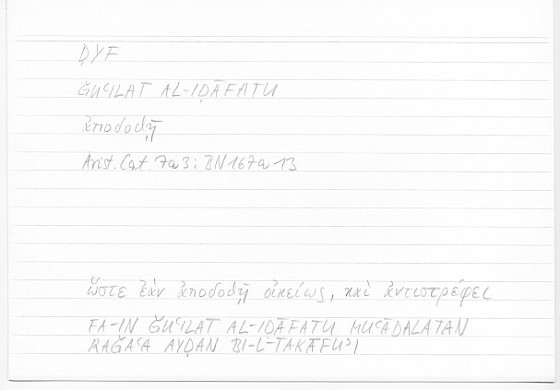 ḌYF
ǦUʿILAT AL-IḌĀFATU
ἀποδοδῇ
Arist. Cat. 7a3 : BN 167a 13
ὥστε ἐὰν ἀποδοδῇ οἰκείως, καὶ ἀντιστρέφει
FA-IN ǦUʿILAT AL-IḌĀFATU MUʿĀDALATAN
RAǦAʿA AYḌAN BI-L-TAKĀFUʾI